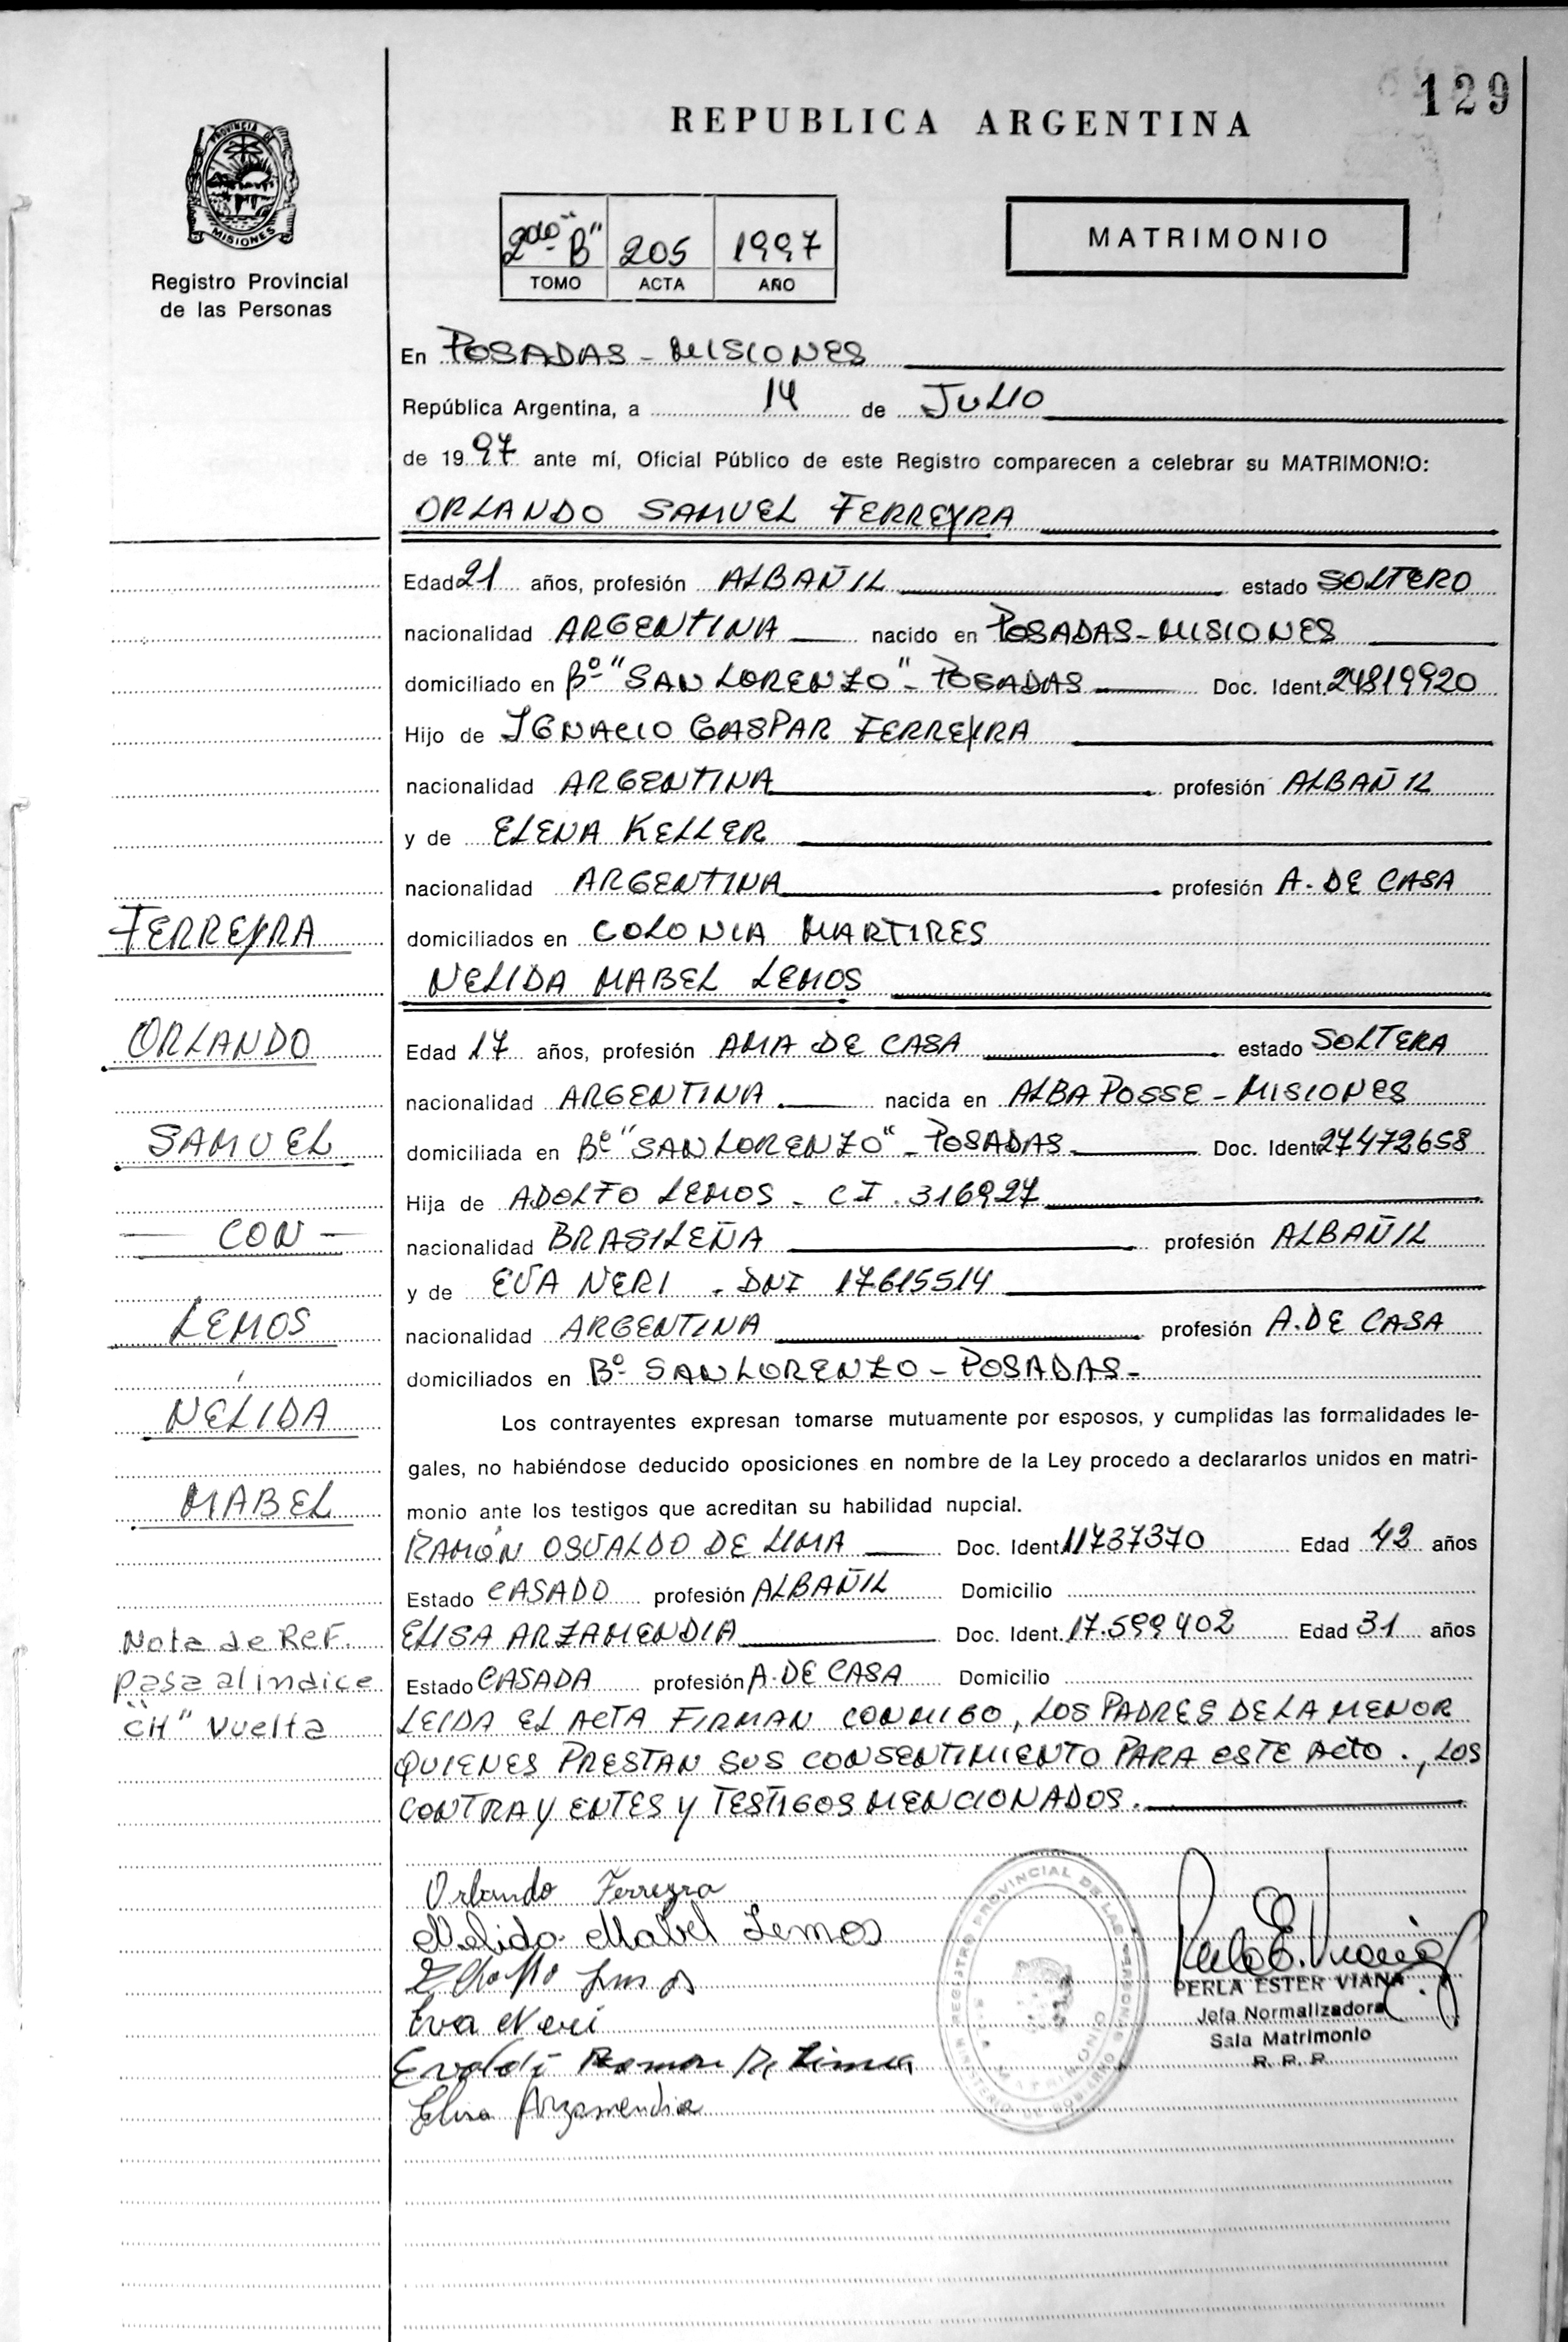 129
REPUBLICA ARGENTINA
PROVINCIA DE
MISIONES
Registro Provincial
de las Personas
2do "B" 205 1997
TOMO ACTA AÑO
MATRIMONIO
En POSADAS - MISIONES
República Argentina, a 14 de JULIO
de 1997 ante mí, Oficial Público de este Registro comparecen a celebrar su MATRIMONIO:
ORLANDO SAMUEL FERREYRA
Edad 21 años, profesión ALBAÑIL estado SOLTERO
nacionalidad ARGENTINA nacido en POSADAS-MISIONES
domiciliado en Bº "SAN LORENZO" - POSADAS Doc. Ident. 24819920
Hijo de IGNACIO GASPAR FERREYRA
nacionalidad ARGENTINA profesión ALBAÑIL
y de ELENA KELLER
nacionalidad ARGENTINA profesión A. DE CASA
domiciliados en COLONIA MARTIRES
NELIDA MABEL LEMOS
Edad 17 años, profesión AMA DE CASA estado SOLTERA
nacionalidad ARGENTINA nacida en ALBA POSSE - MISIONES
domiciliada en Bº "SAN LORENZO" - POSADAS Doc. Ident. 27472658
Hija de ADOLFO LEMOS - CI. 316927
nacionalidad BRASILEÑA profesión ALBAÑIL
y de EVA NERI . DNI 17615514
nacionalidad ARGENTINA profesión A. DE CASA
domiciliados en Bº SAN LORENZO - POSADAS -
Los contrayentes expresan tomarse mutuamente por esposos, y cumplidas las formalidades le-
gales, no habiéndose deducido oposiciones en nombre de la Ley procedo a declararlos unidos en matri-
monio ante los testigos que acreditan su habilidad nupcial.
RAMÓN OSVALDO DE LIMA Doc. Ident. 11737370 Edad 42 años
Estado CASADO profesión ALBAÑIL Domicilio
ELISA ARZAMENDIA Doc. Ident. 17.599402 Edad 31 años
Estado CASADA profesión A. DE CASA Domicilio
LEIDA EL ACTA FIRMAN CONMIGO, LOS PADRES DE LA MENOR
QUIENES PRESTAN SUS CONSENTIMIENTO PARA ESTE ACTO . , LOS
CONTRAYENTES Y TESTIGOS MENCIONADOS.
FERREYRA
ORLANDO
SAMUEL
- CON -
LEMOS
NÉLIDA
MABEL
Nota de Ref.
pasa al indice
"CH" Vuelta
Orlando Ferreyra
Nelida Mabel Lemos
Eva Neri
Elisa Arzamendia
REGISTRO PROVINCIAL DE LAS PERSONAS
MINISTERIO DE GOBIERNO
MATRIMONIO
PERLA ESTER VIANA
Jefa Normalizadora
Sala Matrimonio
R. P. P.